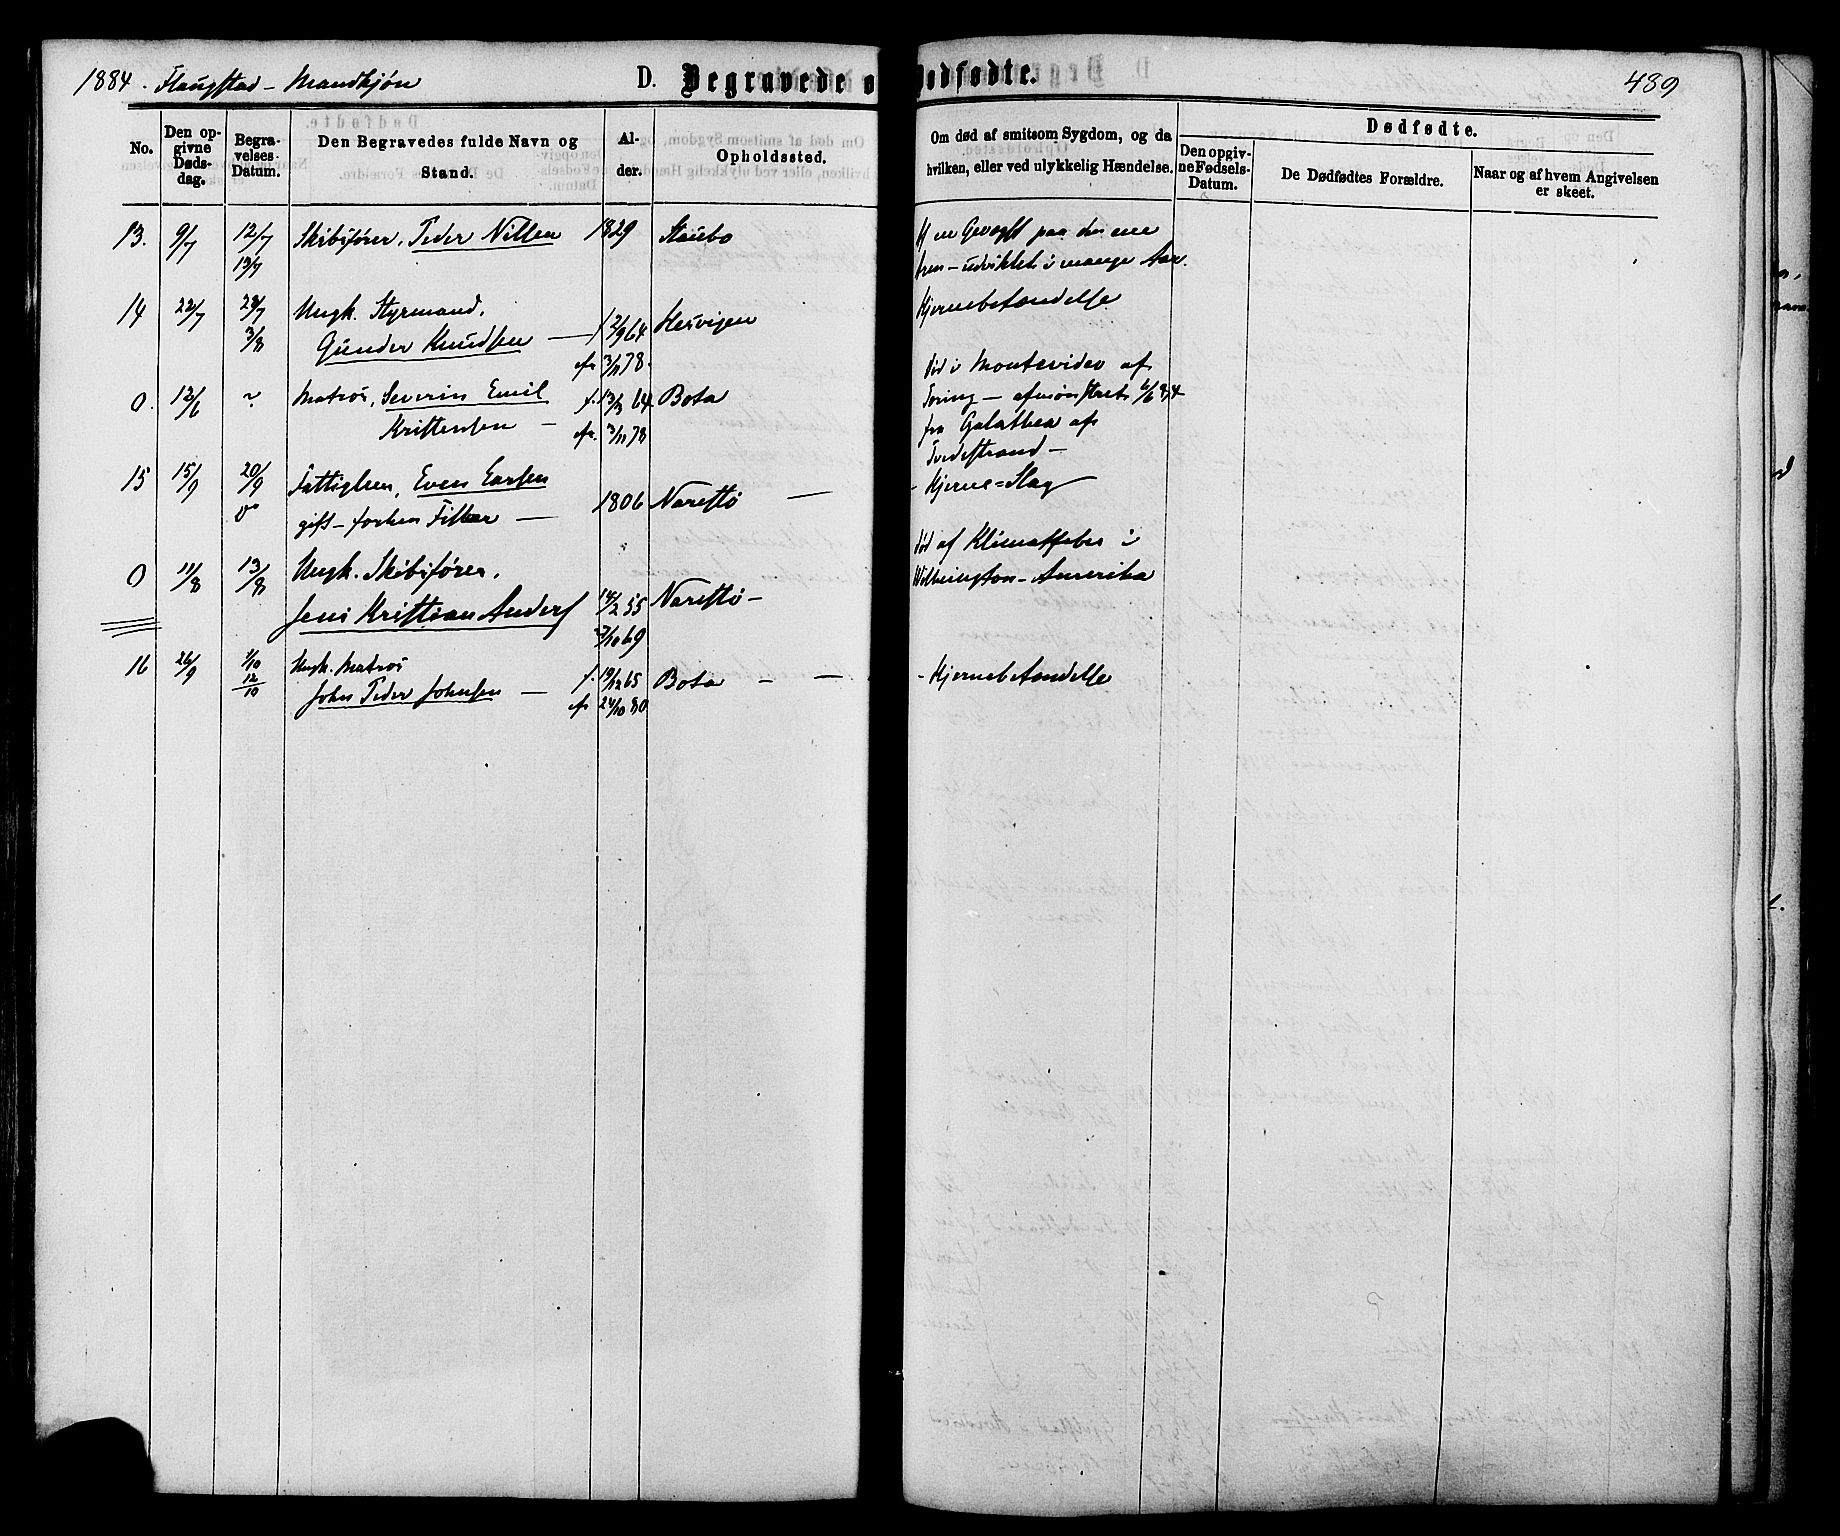 1884. Flangstad - Mandkjøn
D. Begravede o
Dødfødte.
489
No.
Den opgivne Dødsdag.
Begravelses-Datum.
Den Begravedes fulde Navn og Stand.
Alder.
Opholdssted.
Om død af smitsom Sygdom, og da hvilken, eller ved ulykkelig Hændelse.
Dødfødte.
Den opgivne Fødsels-Datum.
De Dødfødtes Forældre.
Naar og af hvem Angivelsen er skeet.
13. 9/7 12/7 Skibsfører, Peder Nilsen 1829 Staubo
13/7
paa den ene
udviklet i mange Aar.
14 22/7 28/7 Ungk. Styrmand,
3/8 Gunder Knudsen — f 12/9 64 Hesvigen Hjernebetændelse
cfr 3/11 78.
0. 12/6 ~ Matros, Severin Emil f. 13/3 64 Bota død i Montevideo af
Kristensen — cfr. 3/11 78
afmønstret 6/6 84
fra Galathea af
Tvedestrand —
15 15/9 20/9 Fattiglem, Even Larsen 1806 Narestø — - Hjerne=Slag
gift — forhen Fisker —
0 11/8 13/8 Ungk. Skibsfører, død af Klimatfeber i
Jens Kristian Anders 14/2 55 Narestø — Wilmington - Amerika
3/10 69
16 26/9 1/10 Ungk. Matros
12/10 John Peder Johnsen — f. 19/12 65 Bota — — - Hjernebetændelse
cfr 24/10 80